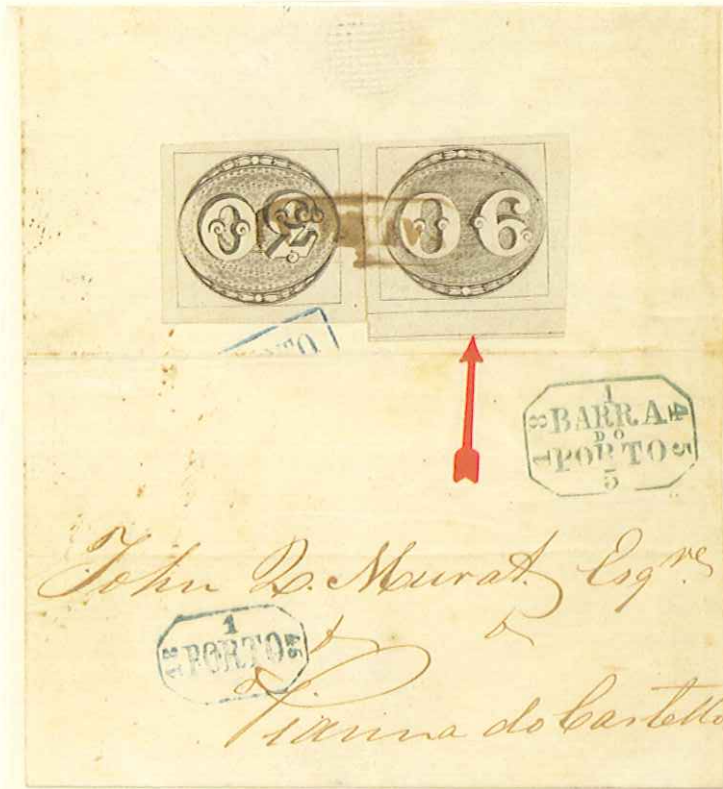 30 90
1
18 BARRA 45
DO
PORTO
5
John R. Murat. Esqre
1
18 PORTO 45
Vianna do Castello